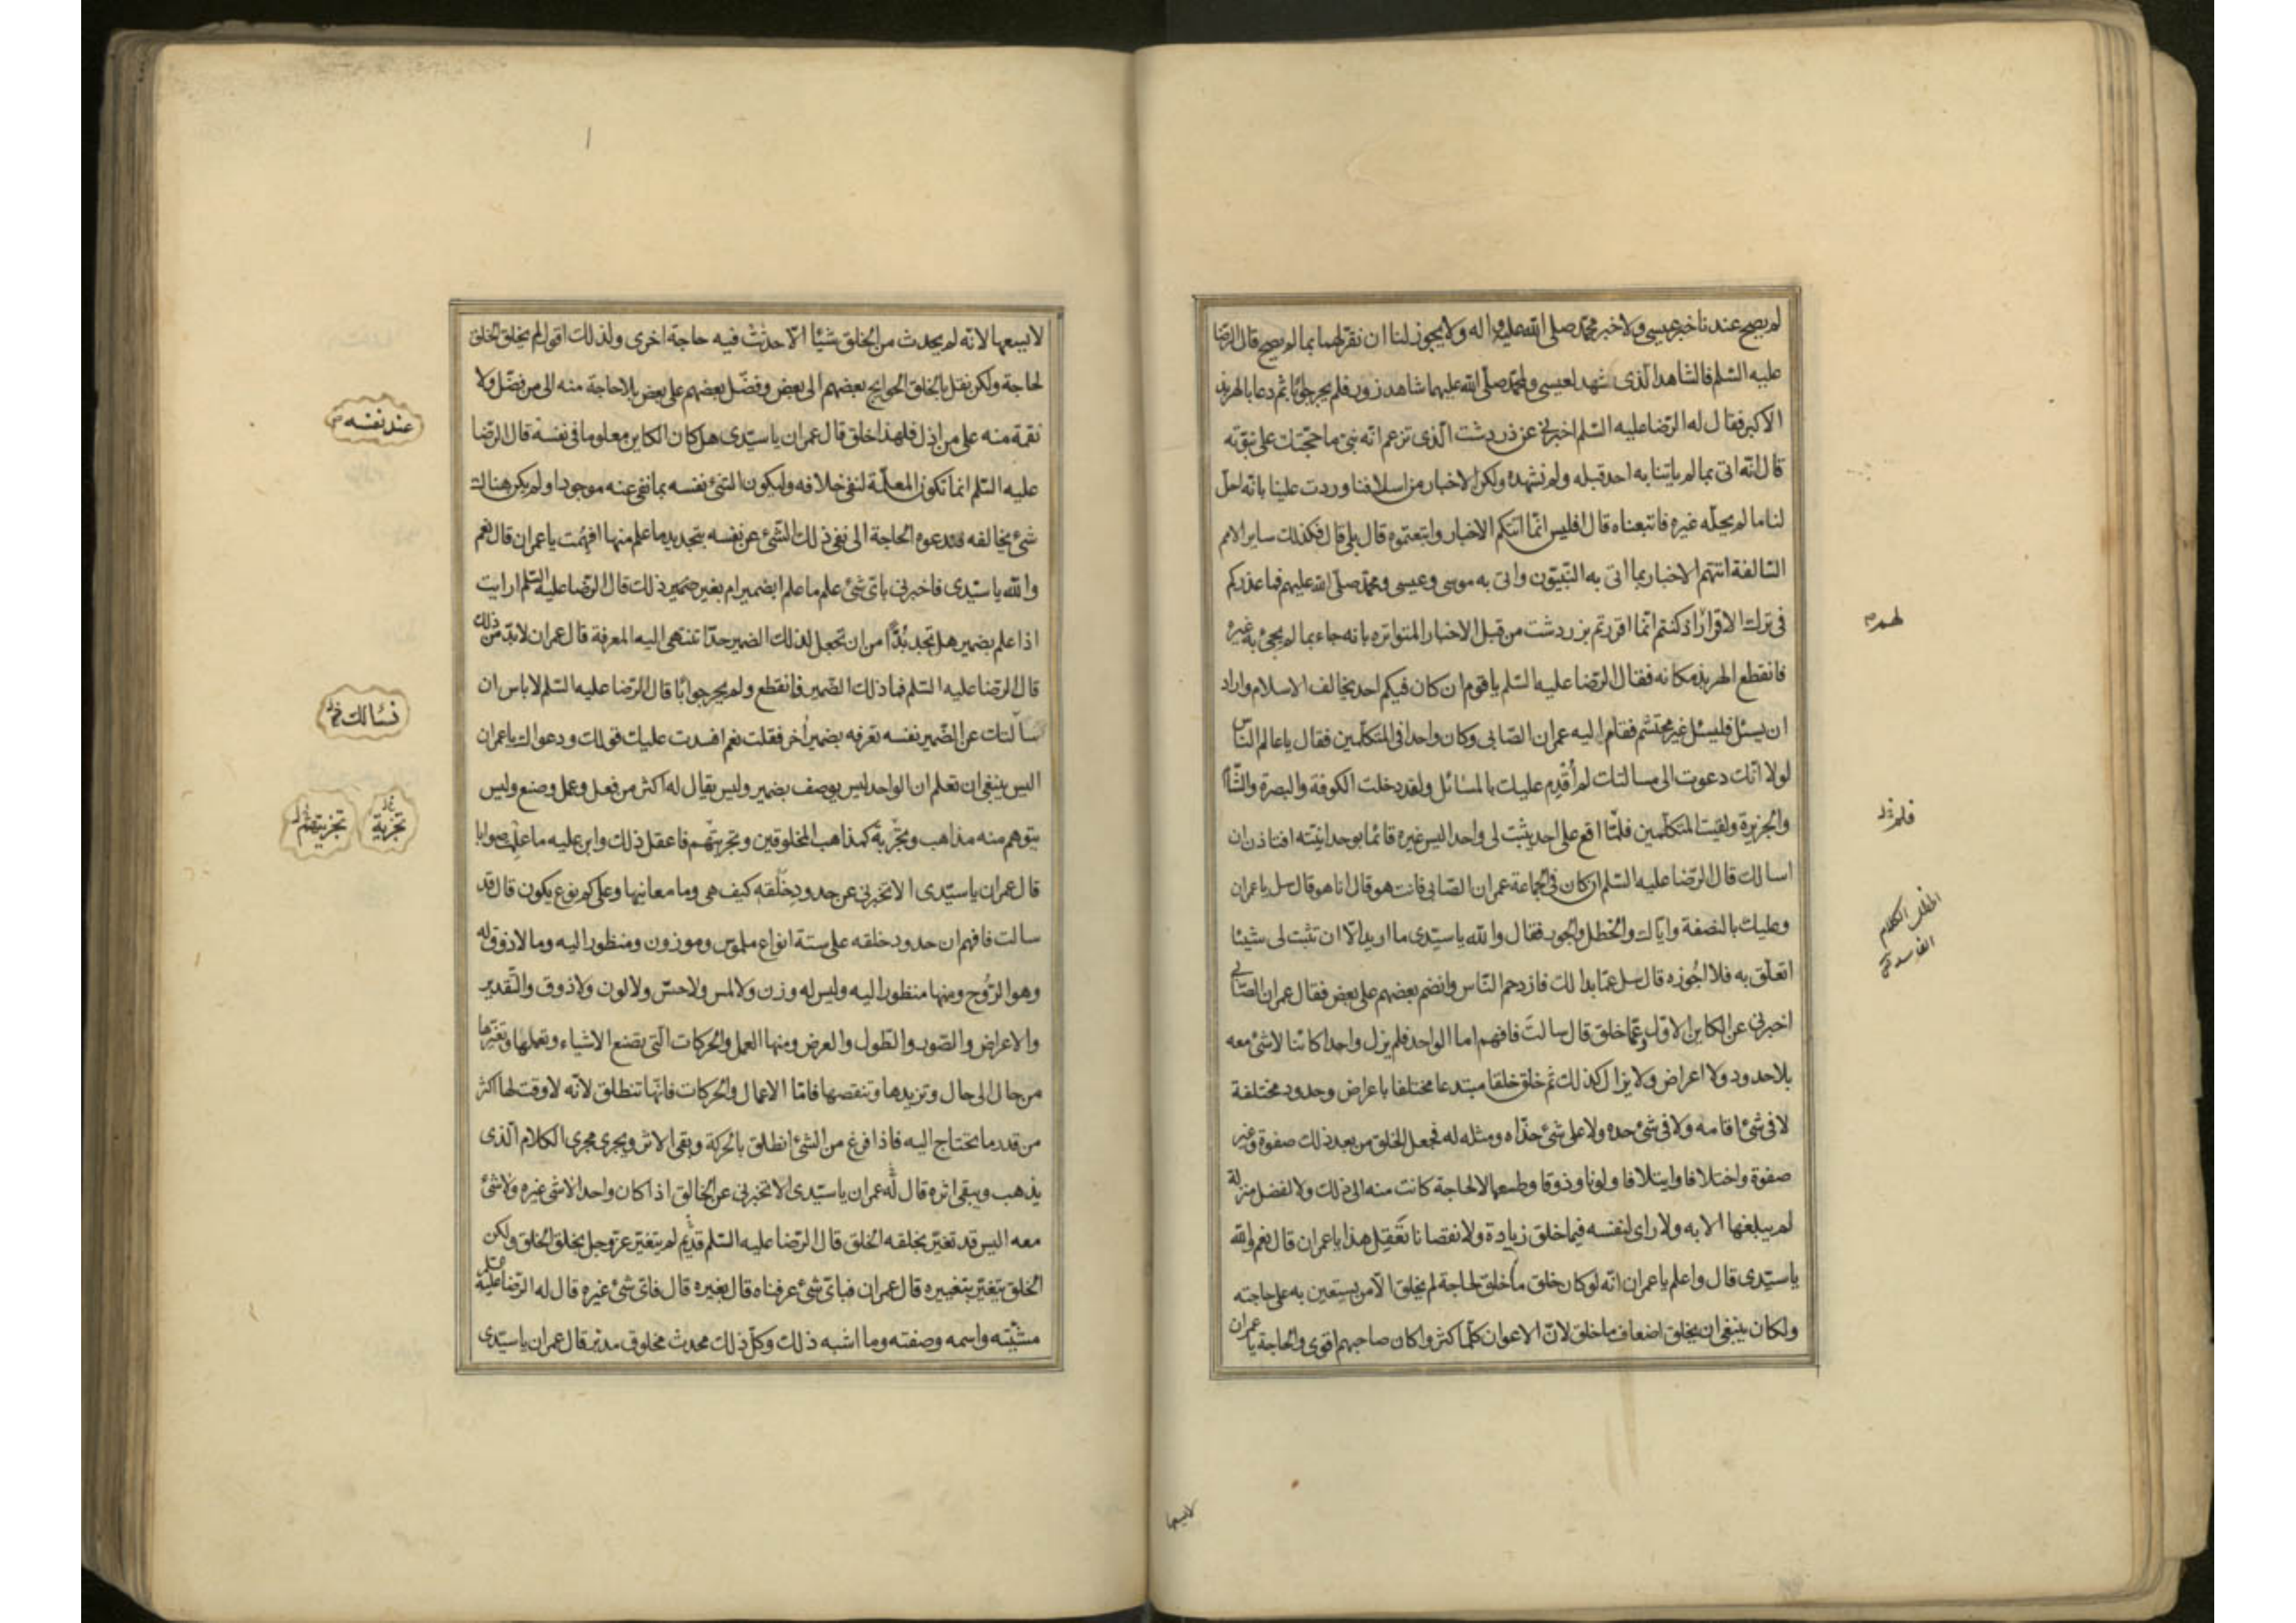 لم يصح عندنا خبر عيسى ولا خبر محمد صلى الله عليه و اله ولا يجوز لنا ان نقر لهما بما لم يصح قال الرضا
عليه السلم فالشاهد الذى شهد لعيسى ولمحمد صلى الله عليهما شاهد زور فلم يحر جوابا ثم دعا بالهربذ
الاكبر فقال له الرضا عليه السلم اخبرنى عن زردشت الذى تزعم انه نبى ما حجتك على نبوته
قال انه اتى بما لم ياتنا به احد قبله ولم نشهده ولكن الاخبار من اسلافنا وردت علينا بانه احل
لنا ما لم يحله غيره فاتبعناه قال افليس انما اتتكم الاخبار واتبعتموه قال بلى قال فكذلك ساير الامم
السالفة اتتهم الاخبار بما اتى به النبيون واتى به موسى وعيسى ومحمد صلى الله عليهم فما عذركم
فى ترك الاقرار اذ كنتم انما اقررتم بزردشت من قبل الاخبار المتواتره بانه جاء بما لم يجئ به غيره
فانقطع الهربذ مكانه فقال الرضا عليه السلم يا قوم ان كان فيكم احد يخالف الاسلام واراد
ان يسئل فليسئل غير محتشم فقام اليه عمران الصابى وكان واحدا فى المتكلمين فقال يا عالم الناس
لولا انك دعوت الى مسالتك لم أقدم عليك بالمسائل ولقد دخلت الكوفة والبصرة والشام
والجزيرة ولقيت المتكلمين فلما اقع على احد يثبت لى واحدا ليس غيره قائما بوحدانيته افتاذن ان
اسالك قال الرضا عليه السلم ان كان فى الجماعة عمران الصابى فانت هو قال انا هو قال سل يا عمران
وعليك بالنصفة واياك والخطل والجور فقال والله يا سيدى ما اريد الا ان تثبت لى شيئا
اتعلق به فلا اجوزه قال سل عما بدا لك فازدحم الناس وانضم بعضهم على بعض فقال عمران الصابى
اخبرنى عن الكاين الاول وعما خلق قال سالت فافهم اما الواحد فلم يزل واحدا كائنا لا شئ معه
بلا حدود ولا اعراض ولا يزال كذلك ثم خلق خلقا مبتدعا مختلفا باعراض وحدود مختلفة
لا فى شئ اقامه ولا فى شئ حده ولا على شئ حذاه ومثله له فجعل الخلق من بعد ذلك صفوة وغير
صفوة واختلافا وايتلافا ولونا وذوقا وطمعا لا لحاجة كانت منه الى ذلك ولا لفضل منزلة
لم يبلغها الا به ولا راى لنفسه فيما خلق زيادة ولا نقصانا تعقل هذا يا عمران قال نعم والله
يا سيدى قال واعلم يا عمران انه لو كان خلق ما خلق لحاجة لم يخلق الا من يستعين به على حاجته
ولكان ينبغى ان يخلق اضعاف ما خلق لان الاعوان كلما كثروا كان صاحبهم اقوى والحاجة يا عمران
لهم
فلم خ ل
الخطل الكلام
الفاسد ق
لا يسعها
لا يسعها لانه لم يحدث من الخلق شيئا الا حدثت فيه حاجة اخرى ولذلك اقول لم يخلق الخلق
لحاجة ولكن نقل بالخلق الحوايج بعضهم الى بعض وفضل بعضهم على بعض بلا حاجة منه الى من فضل ولا
نقمة منه على من اذل فلهذا خلق قال عمران يا سيدى هل كان الكاين معلوما فى نفسه قال الرضا
عليه السلم انما تكون المعلمة لنفى خلافه وليكون الشئ نفسه بما نفى عنه موجودا ولم يكن هناك
شئ يخالفه فتدعوه الحاجة الى نفى ذلك الشئ عن نفسه بتحديد ما علم منها افهمت يا عمران قال نعم
والله يا سيدى فاخبرنى باى شئ علم ما علم ابضمير ام بغير ضمير ذلك قال الرضا عليه السلم ارايت
اذا علم بضمير هل تجد بدا من ان تجعل لذلك الضمير حدا تنتهى اليه المعرفة قال عمران لا بد من ذلك
قال الرضا عليه السلم فما ذلك الضمير فانقطع ولم يحر جوابا قال الرضا عليه السلم لا باس ان
سالتك عن الضمير نفسه تعرفه بضمير أخر فقلت نعم افسدت عليك قولك ودعواك يا عمران
اليس ينبغى ان تعلم ان الواحد ليس يوصف بضمير وليس يقال له اكثر من فعل وعمل وصنع وليس
يتوهم منه مذاهب وتجربة كمذاهب المخلوقين وتجربتهم فاعقل ذلك وابن عليه ما علمت صوابا
قال عمران يا سيدى الا تخبرنى عن حدود خلقه كيف هى وما معانيها وعلى كم نوع يكون قال قد
سالت فافهم ان حدود خلقه على ستة انواع ملموس وموزون ومنظور اليه وما لا ذوق له
وهو الروح ومنها منظور اليه وليس له وزن ولا لمس ولا حس ولا لون ولا ذوق والتقدير
والاعراض والصور والطول والعرض ومنها العمل والحركات التى تصنع الاشياء وتعملها وتغيرها
من حال الى حال وتزيدها وتنقصها فاما الاعمال والحركات فانها تنطلق لانه لا وقت لها اكثر
من قدر ما يحتاج اليه فاذا فرغ من الشئ انطلق بالحركة وبقى الاثر ويجرى مجرى الكلام الذى
يذهب ويبقى اثره قال له عمران يا سيدى الا تخبرنى عن الخالق اذا كان واحدا لا شئ غيره ولا شئ
معه اليس قد تغير بخلقه الخلق قال الرضا عليه السلم قديم لم يتغير عز وجل بخلق الخلق ولكن
الخلق يتغير بتغييره قال عمران فباى شئ عرفناه قال بغيره قال فاى شئ غيره قال له الرضا عليه السلم
مشيته واسمه وصفته وما اشبه ذلك وكل ذلك محدث مخلوق مدبر قال عمران يا سيدى
عند نفسه
نسالك خ
تجزية خ ل
تجزيتهم